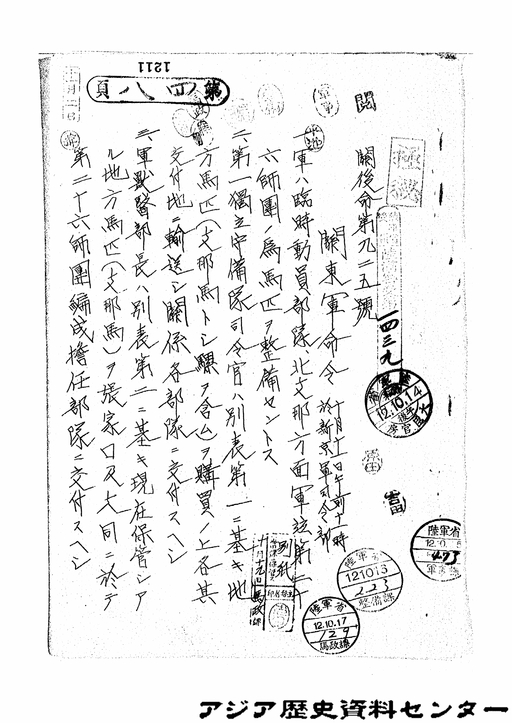 1211
第四八頁
極秘
關後命第九二五號
一四三九
關東軍命令 於新京軍司令部
一、軍ハ臨時動員部隊北支那方面軍並第二十
六師團ノ爲馬匹ヲ整備セントス
二、第一獨立守備隊司令官ハ別表第一ニ基キ地
方馬匹(支那馬トシ騾ヲ含ム)ヲ購買ノ上各其
交付地ニ輸送シ關係各部隊ニ交付スヘシ
三、軍獸醫部長ハ別表第二ニ基キ現在保管シア
ル地方馬匹(支那馬)ヲ張家口及大同ニ於テ
第二十六師團編成擔任部隊ニ交付スヘシ
12.10.14
陸軍省
陸軍省
12.10.17
129
馬政課
223
整備課
アジア歴史資料センター